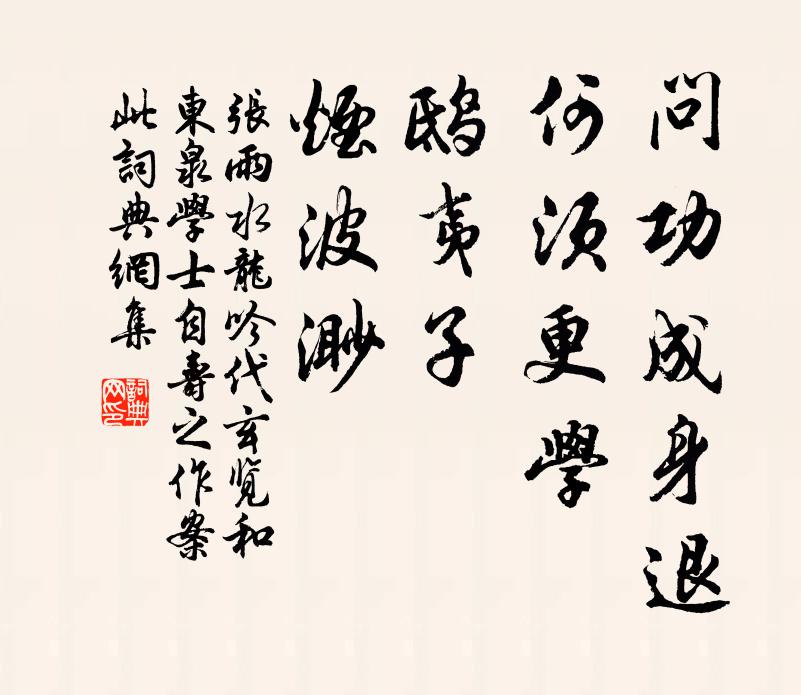 問功成身退
何須更學
鴟夷子
煙波渺
張雨水龍吟代玄覽和
東泉學士自壽之作案
此詞典網集
詞典
网印